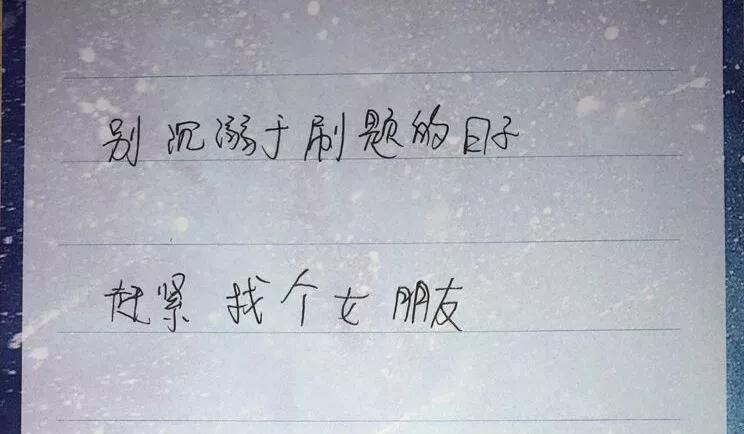 别沉溺于刷题的日子
赶紧找个女朋友